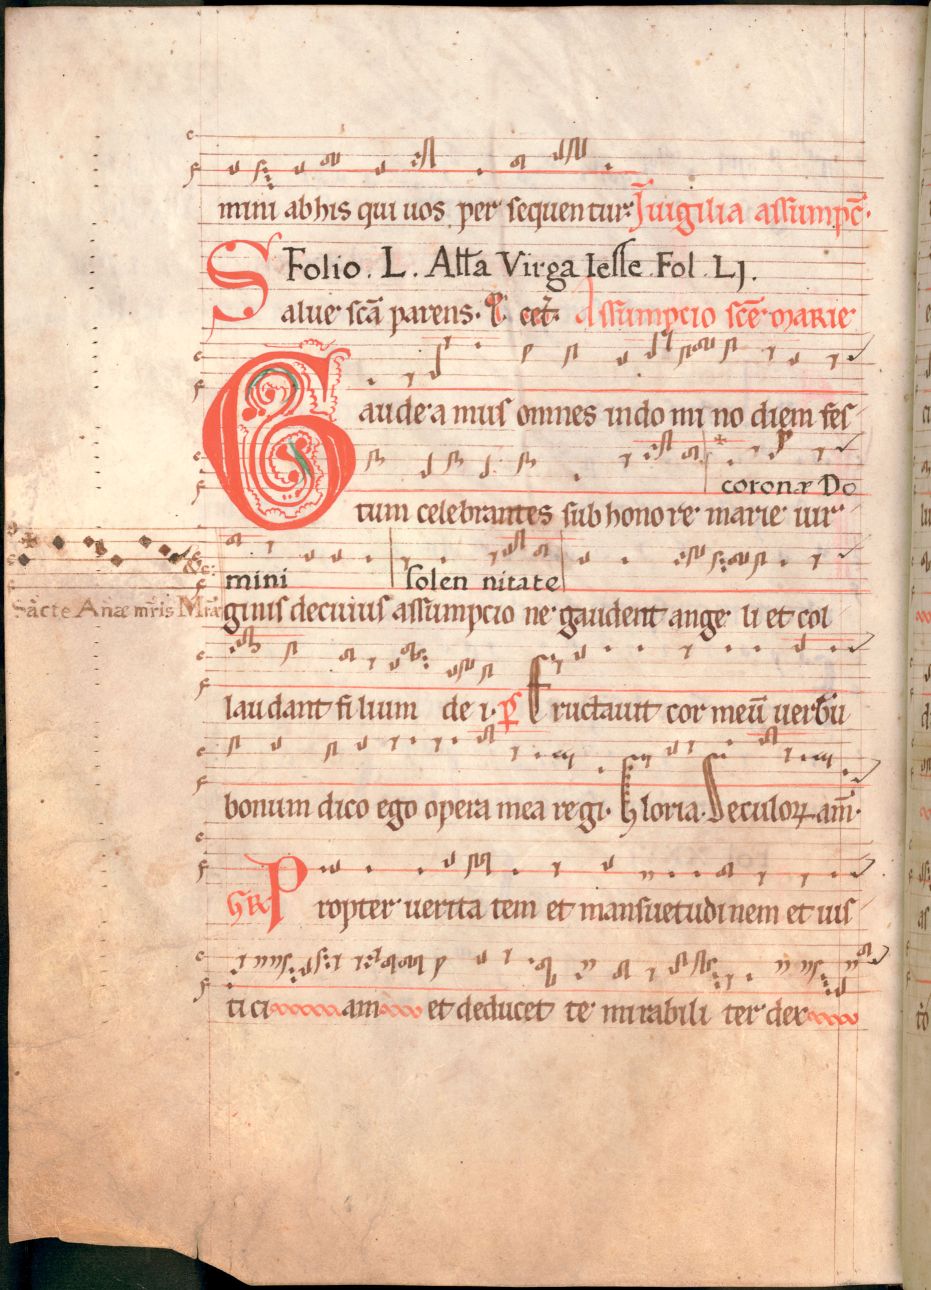 mini ab his qui uos per sequentur. In uigilia assumpc̄.
S Folio . L . Atta Virga Iesse . Fol . LJ .
alue sc̄a parens. cet. Assumpcio sc̄e marie
Gaude a mus omnes in do mi no diem fes
coronæ Do
tum celebrantes sub hono re marie uir
mini solen nitate
Sācte Anæ mr̄is Mr̄æ
ginis de cuius assumpcio ne gaudent ange li et col
laudant fi lium de i. p̄ Eructauit cor meū uerbū
bonum dico ego opera mea re gi. Gloria. Seculoꝝ am̄.
GR̄ Propter uerita tem et mansuetudi nem et uis
ti ci am et deducet te mi rabili ter dex